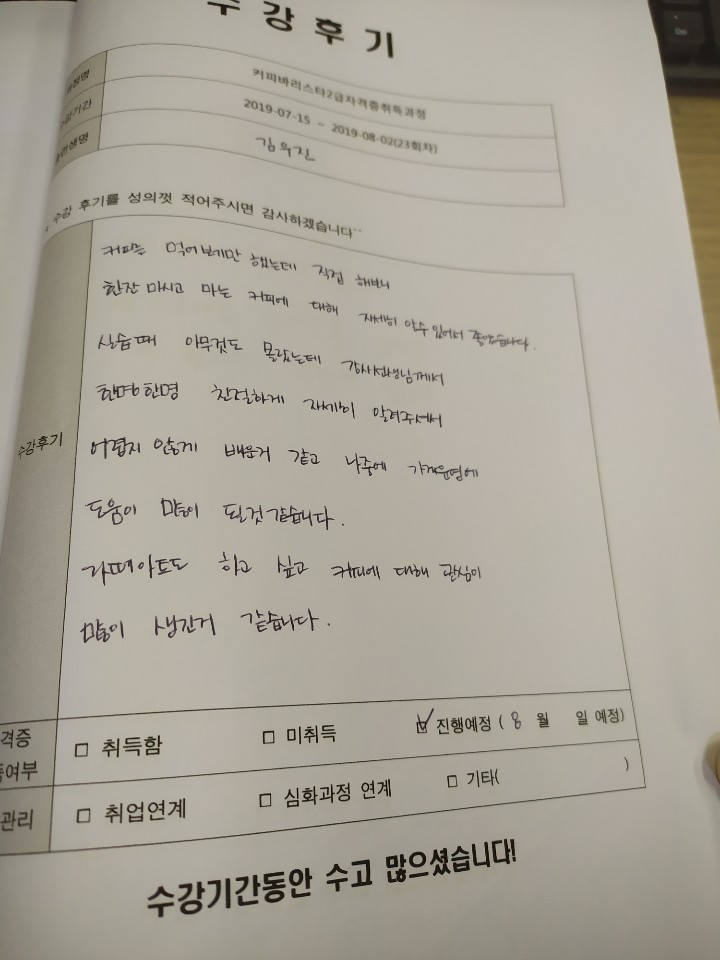 수강후기
과정명 커피바리스타2급자격증취득과정
수강기간 2019-07-15 ~ 2019-08-02(23회차)
김옥진
수강 후기를 성의껏 적어주시면 감사하겠습니다^^
수강후기
커피는 먹어보기만 했는데 직접 해보니
한잔 마시고 마는 커피에 대해 자세히 알수 있어서 좋았습니다.
실습때 아무것도 몰랐는데 강사선생님께서
한명한명 친절하게 자세히 알려주셔서
어렵지 않게 배운거 같고 나중에 가게운영에
도움이 많이 될것 같습니다.
라떼아트도 하고 싶고 커피에 대해 관심이
많이 생긴거 같습니다.
격증
득여부
□ 취득함 □ 미취득 ☑ 진행예정 ( 8 월 일 예정)
관리 □ 취업연계 □ 심화과정 연계 □ 기타( )
수강기간동안 수고 많으셨습니다!